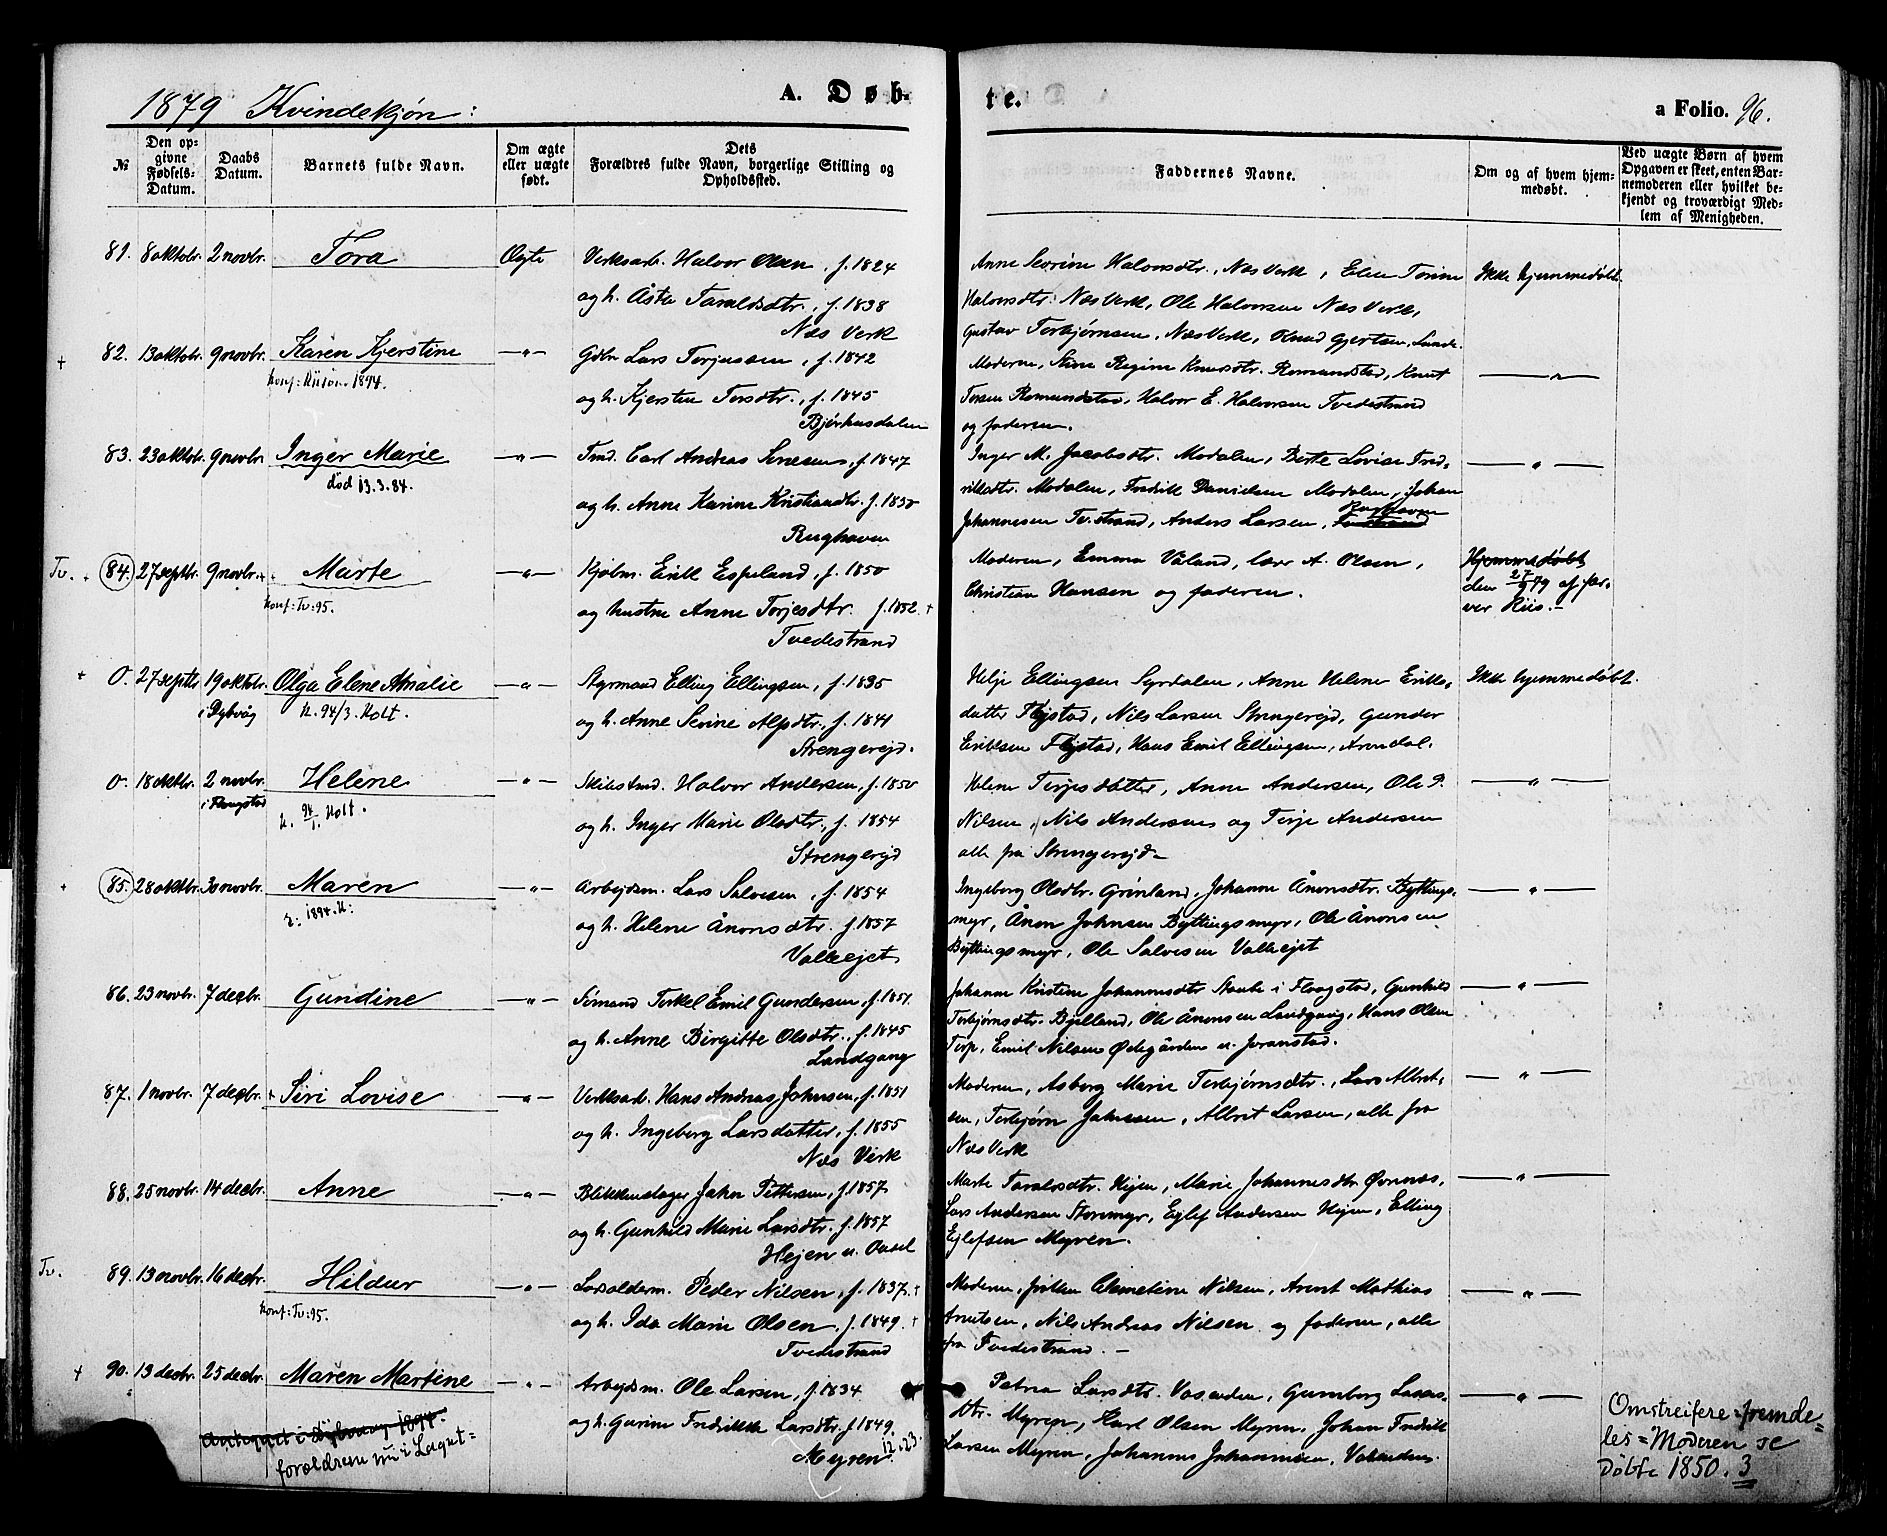 1879 Kvindekjøn:
A. Døb-
te.
a Folio. 96.
№
Den op-
givne
Fødsels-
Datum.
Daabs
Datum.
Barnets fulde Navn.
Om ægte
eller uægte
født.
Dets
Forældres fulde Navn, borgerlige Stilling og
Opholdssted.
Faddernes Navne.
Om og af hvem hjem-
medøbt.
Ved uægte Børn af hvem
Opgaven er skeet, enten Bar-
nemoderen eller hvilket be-
kjendt og troværdigt Med-
lem af Menigheden.
81. 8 oktobr. 2 novbr. Tora Ægte Verksarb. Halvor Olsen, f. 1824
og h. Åste Taraldsdtr., f. 1838
Næs Verk
Anne Severine Halvorsdtr., Næs Verk, Elen Torine Ikke hjemmedøbt.
Halvorsdtr. Næs Verk, Ole Halvorsen Næs Verk,
Gustav Terbjørnsen, Næs Verk, Knud Gjertsen, Lunde.
+ 82. 13 oktobr. 9 novbr. Karen Kjerstine —"— Gdbr. Lars Terjussen, f. 1842
Konf: Riisør 1894.
og h. Kjersten Torsdtr., f. 1845
Bjørhusdalen
Moderen, Stine Regine Knutsdtr. Romundstad, Knut —"—
Torsen Romundstad, Halvor E. Halvorsen Tvedestrand
og faderen.
83. 23 oktobr. 9 novbr. Inger Marie —"— Tmd. Carl Andreas Senesen, f. 1847
død 13.3.84.
og h. Anne Karine Kristiansdtr. f. 1850
Rughaven
Inger M. Jacobsdtr. Modalen, Berte Lovise Fred- —"—
riksdtr. Modalen, Fredrik Danielsen Modalen, Johan
Johannesen Tv.strand, Anders Larsen, Rughaven
Tv. + 84. 27 septbr. 9 novbr. + Marte —"— Kjøbm. Erik Espeland, f. 1850
Konf: Tv: 95.
og hustru Anne Terjesdtr. f. 1852. +
Tvedestrand
Moderen, Emma Våland, lærer A. Olsen,
Christian Hansen og faderen.
Hjemmedøbt
den 27/9 79 af far-
ver Riis.
+ 0. 27 septbr. 19 oktobr. Olga Elene Amalie —"— Styrmand Elling Ellingsen, f. 1835
i Dybvåg K. 94/3. Holt.
og h. Anne Sevine Alpdtr., f. 1841
Strengerejd.
Helje Ellingsen Syrdalen, Anne Helene Eriks- Ikke hjemmedøbt.
datter Fløjstad, Nils Larsen Strengerejd, Gunder
Eriksen Fløjstad, Hans Emil Ellingsen, Arendal.
0. 18 oktbr. 2 novbr. Helene —"— Skibstmd. Halvor Andersen, f. 1850
K. 94/1. Holt.
og h. Inger Marie Olsdtr., f. 1854
Strengerejd
Helene Terjesdatter, Anne Andersen, Ole P. —"—
Nilsen, Nils Andersen og Terje Andersen
alle fra Strengerejd
+ 85. 28 oktbr. 30 novbr. Maren —"— Arbejdsm. Lars Salvesen, f. 1854
1894.
og h. Helene Ånonsdtr. f. 1857
Valleejet
Ingeborg Olsdtr. Grønland, Johanne Ånonsdtr. Byttings- —"—
myr, Ånon Johnsen Byttingsmyr, Ole Ånonsen
Byttingsmyr, Ole Salvesen Valleejet
86. 23 novbr. 7 decbr. Gundine —"— Sømand Terkel Emil Gundersen, f. 1851
og h. Anne Birgitte Olsdtr., f. 1845
Landgang
Johanne Kristine Johannesdtr. Staube i Flaugstad, Gunhild —"—
Terbjørnsdtr. Bjelland, Ole Ånonsen Landgang, Hans Olsen
Terp, Emil Nilsen Ødegården u. Joranstad.
87. 1 novbr. 7 decbr. + Siri Lovise —"— Verksarb. Hans Andreas Johnsen, f. 1851
og h. Ingeborg Larsdatter, f. 1855
Næs Verk
Moderen, Asberg Marie Terbjørnsdtr., Lars Albret- —"—
sen, Terbjørn Johnssen, Albrit Larsen, alle fra
Næs Verk
88. 25 novbr. 14 decbr. Anne —"— Blikkenslager John Pettersen, f. 1857
og h. Gunhild Marie Larsdtr. f. 1857
Hejen u. Aasel
Marte Taraldsdtr. Hejen, Marie Johannesdtr. Øvrenæs, —"—
Lars Andersen Storemyr, Ejlef Andersen Hejen, Elling
Ejlefsen Myren.
Tv. 89. 13 novbr. 16 decbr. Hildur —"— Losolderm. Peder Nilsen, f. 1837. +
Konf: Tv: 95.
og h. Ida Marie Olsen f. 1849. +
Tvedestrand
Moderen, frøken Clementine Nilsen, Arent Mathias —"—
Arentsen, Nils Andreas Nilsen og faderen, alle
fra Tvedestrand.
+ 90. 13 decbr. 25 decbr. Maren Martine —"— Arbejdsm. Ole Larsen, f. 1834
og h. Gurine Fredrikke Larsdtr. f. 1849.
Myren 12.23.
forældrene nu i Laget=
Petrea Larsdtr. Vasenden, Gumborg Lasses- —"—
dtr. Myren, Karl Olsen Myren, Johan Fredrik
Larsen Myren, Johannes Johannesen, Vasenden.
Omstreifere=fremde-
les=Moderen se
Døbte 1850. 3